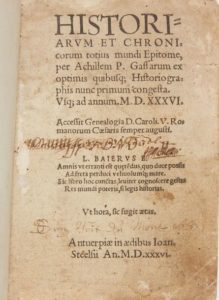 HISTORI-
ARVM ET CHRONI
corum totius mundi Epitome,
per Achillem P. Gassarum ex
optimis quibusq; Historiogra
phis nunc primum congesta.
Usq; ad annum. M. D. XXXVI.
Accessit Genealogia D. Caroli. V. Ro
manorum Cæsaris semper augusti.
L. BAIERVS
Amnis ut erranti est querẽdus, quo duce possis
Ad freta perduci velivolumq; mare.
Sic libro hoc
Res mundi poteris, si legis historias.
Ut hora, sic fugit ætas.
Antuerpiæ in ædibus Ioan.
Steelsii An. M.D.xxxvi.